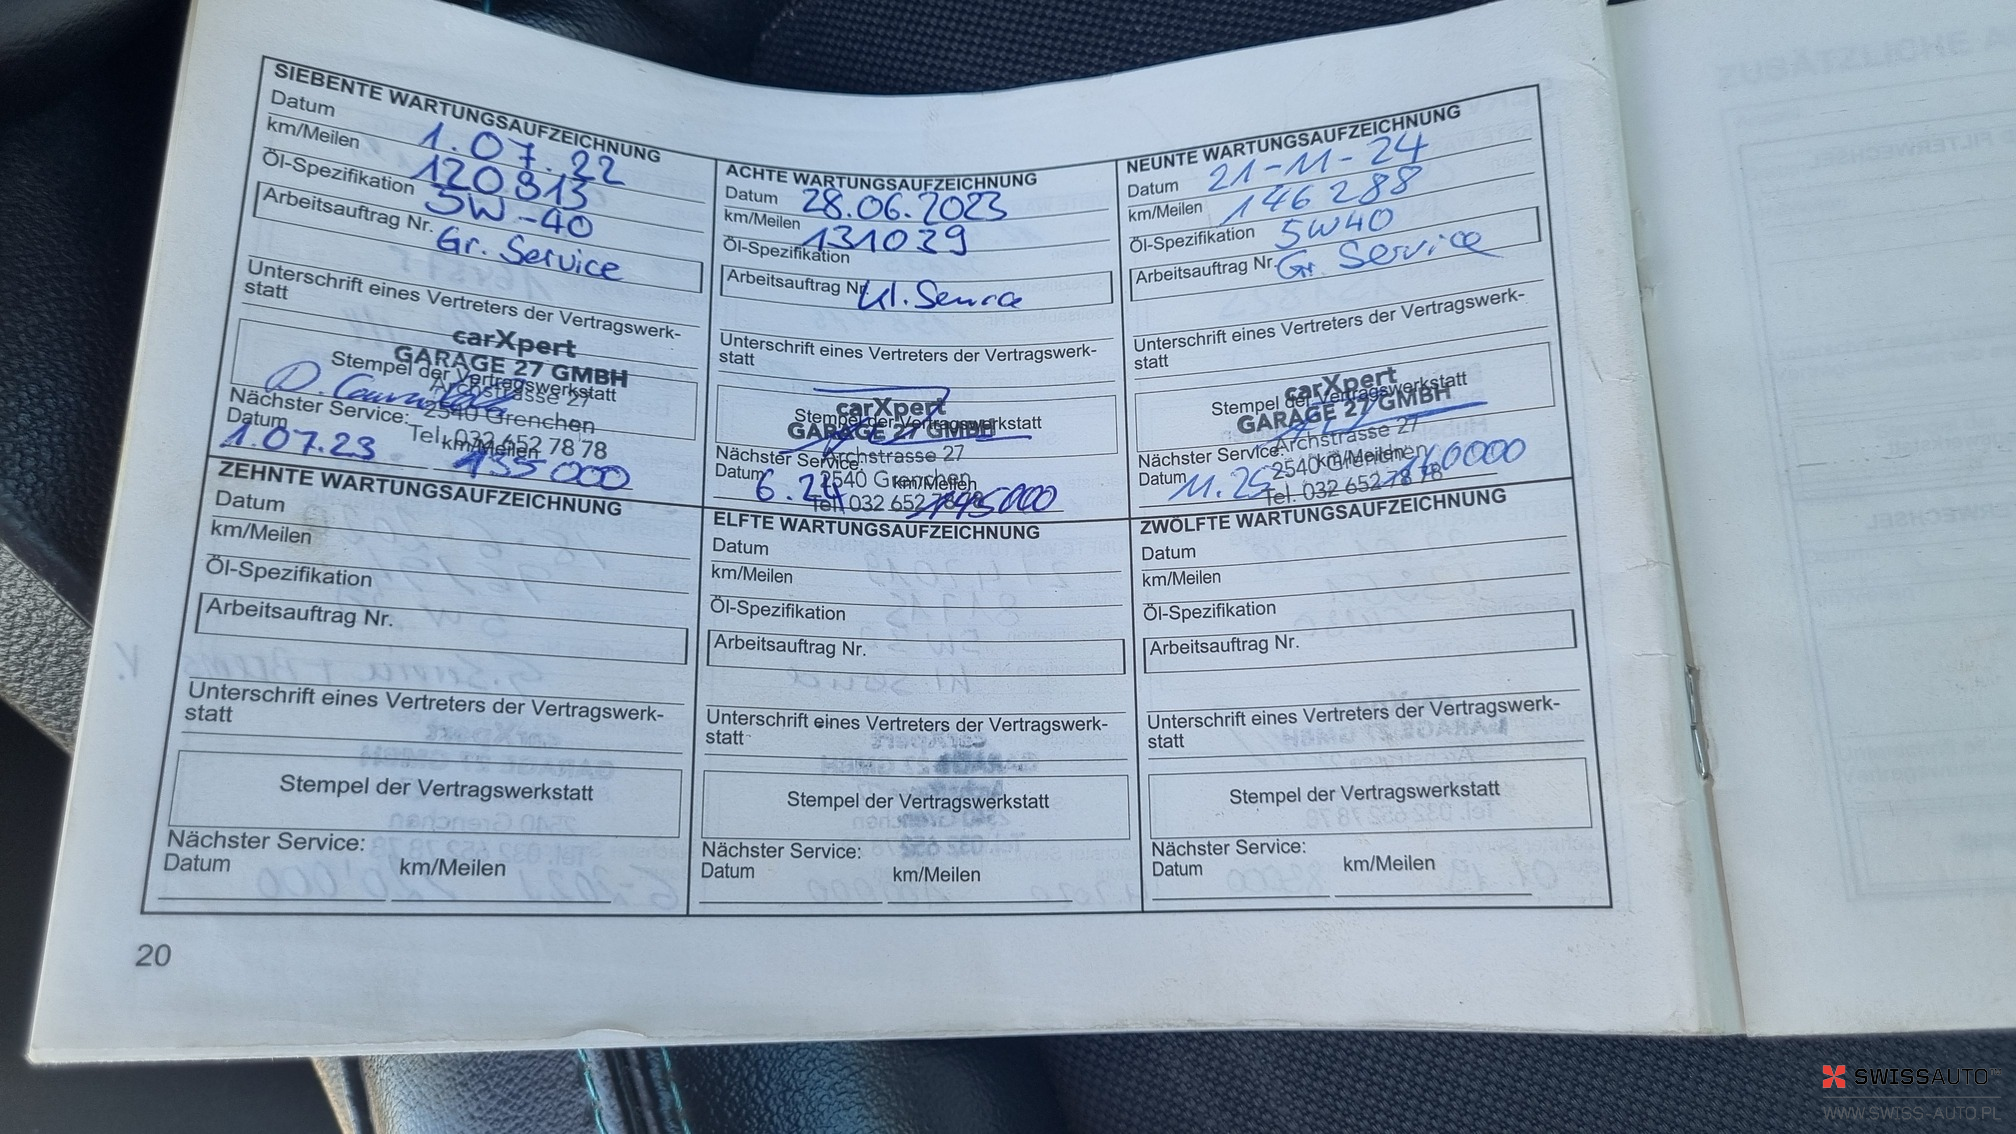 SIEBENTE WARTUNGSAUFZEICHNUNG
Datum 1.07.22
km/Meilen 120813
Öl-Spezifikation 5W-40
Arbeitsauftrag Nr. Gr. Service
Unterschrift eines Vertreters der Vertragswerk-
statt
carXpert
GARAGE 27 GMBH
Stempel der Vertragswerkstatt
Archstrasse 27
2540 Grenchen
Tel. 032 652 78 78
Nächster Service:
Datum km/Meilen
1.07.23 135000
ACHTE WARTUNGSAUFZEICHNUNG
Datum 28.06.2023
km/Meilen 131029
Öl-Spezifikation
Arbeitsauftrag Nr. Kl. Service
Unterschrift eines Vertreters der Vertragswerk-
statt
carXpert
Stempel der Vertragswerkstatt
GARAGE 27 GMBH
Archstrasse 27
2540 Grenchen
Tel. 032 652 78 78
Nächster Service:
Datum km/Meilen
6.24 145000
NEUNTE WARTUNGSAUFZEICHNUNG
Datum 21-11-24
km/Meilen 146288
Öl-Spezifikation 5W40
Arbeitsauftrag Nr. Gr. Service
Unterschrift eines Vertreters der Vertragswerk-
statt
carXpert
Stempel der Vertragswerkstatt
GARAGE 27 GMBH
Archstrasse 27
2540 Grenchen
Tel. 032 652 78 78
Nächster Service:
Datum km/Meilen
11.25 160000
ZEHNTE WARTUNGSAUFZEICHNUNG
Datum
km/Meilen
Öl-Spezifikation
Arbeitsauftrag Nr.
Unterschrift eines Vertreters der Vertragswerk-
statt
Stempel der Vertragswerkstatt
Nächster Service:
Datum km/Meilen
ELFTE WARTUNGSAUFZEICHNUNG
Datum
km/Meilen
Öl-Spezifikation
Arbeitsauftrag Nr.
Unterschrift eines Vertreters der Vertragswerk-
statt
Stempel der Vertragswerkstatt
Nächster Service:
Datum km/Meilen
ZWÖLFTE WARTUNGSAUFZEICHNUNG
Datum
km/Meilen
Öl-Spezifikation
Arbeitsauftrag Nr.
Unterschrift eines Vertreters der Vertragswerk-
statt
Stempel der Vertragswerkstatt
Nächster Service:
Datum km/Meilen
20
SWISSAUTO
WWW.SWISS-AUTO.PL